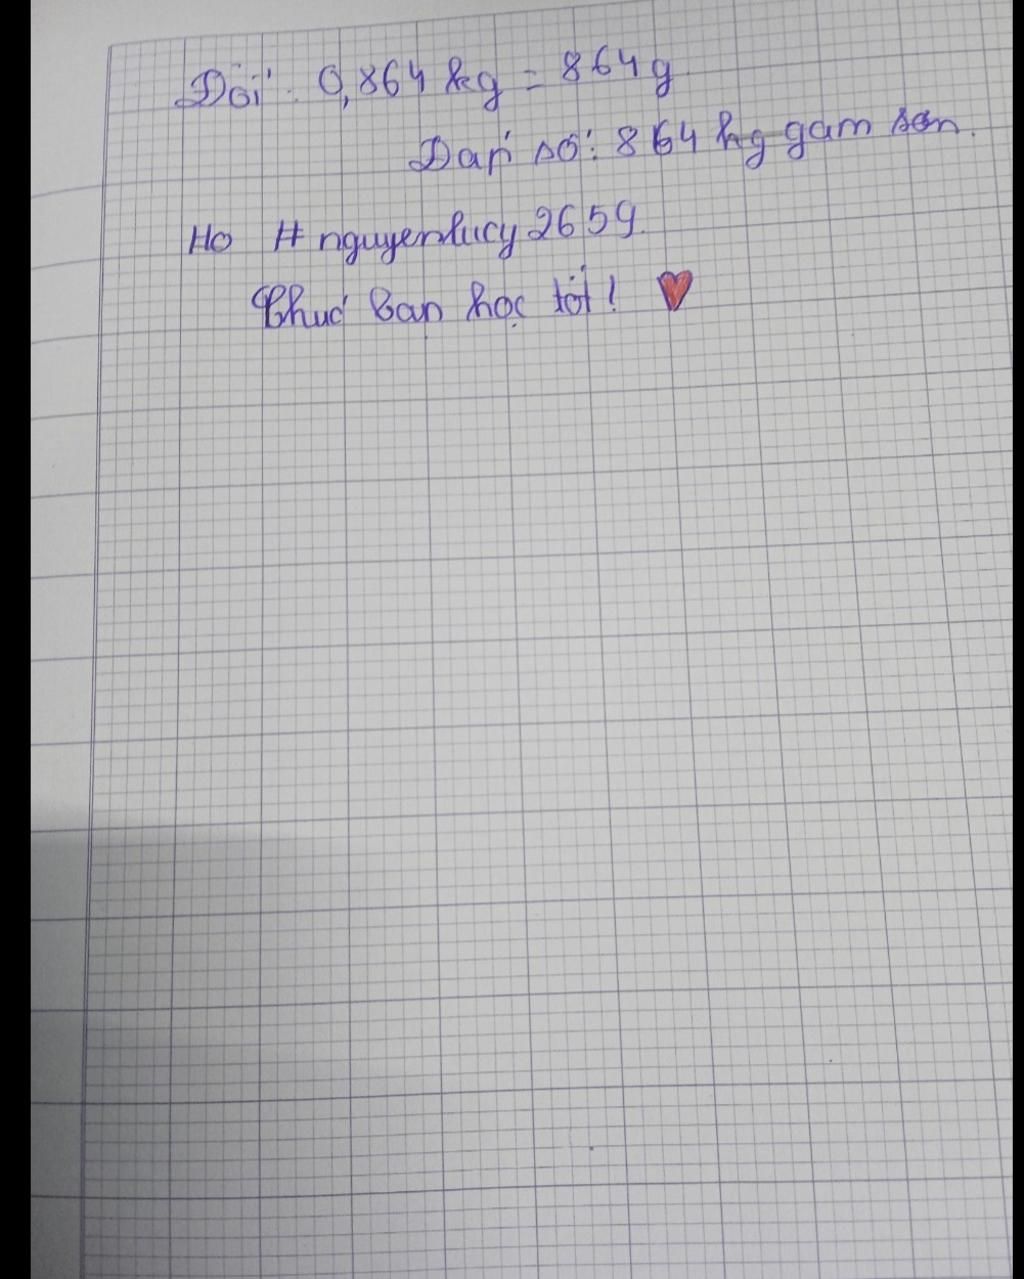 Đổi: 0,864 kg = 864g
Đáp số: 864 kg gam sơn.
Ho # nguyenlucy2659.
Chúc bạn học tốt! ♥